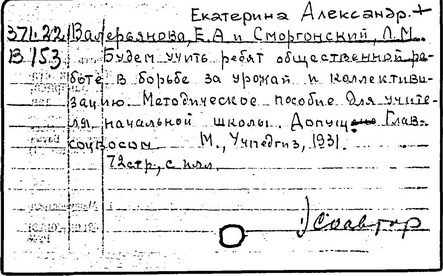 Екатерина Александр. +
371.22 Валерьянова, Е.А и Сморгонский, Л.М..
В 153 Будем учить ребят общественной ра-
боте в борьбе за урожай и коллективи-
зацию. Методическое пособие для учите-
ля начальной школы. Допущ. Глав-
соцвосом М., Учпедгиз, 1931.
72стр., с илл.
1) Соавтор